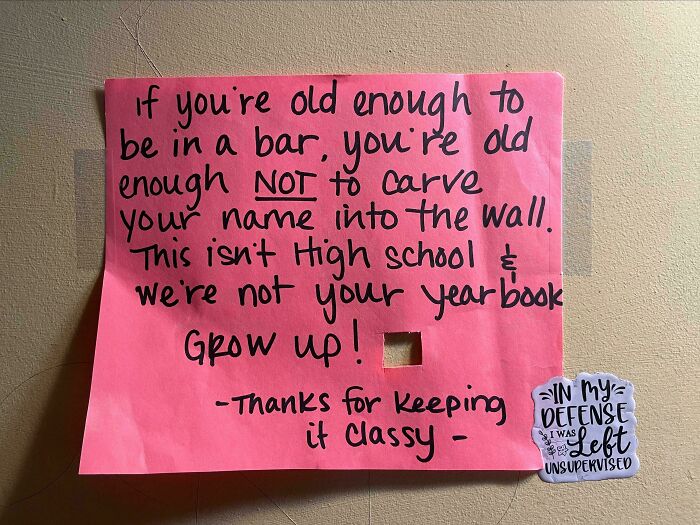 If you're old enough to
be in a bar, you're old
enough NOT to carve
your name into the wall.
This isn't High school &
we're not your yearbook
Grow up!
- Thanks for keeping
it classy -
IN My
DEFENSE
I WAS
Left
UNSUPERVISED